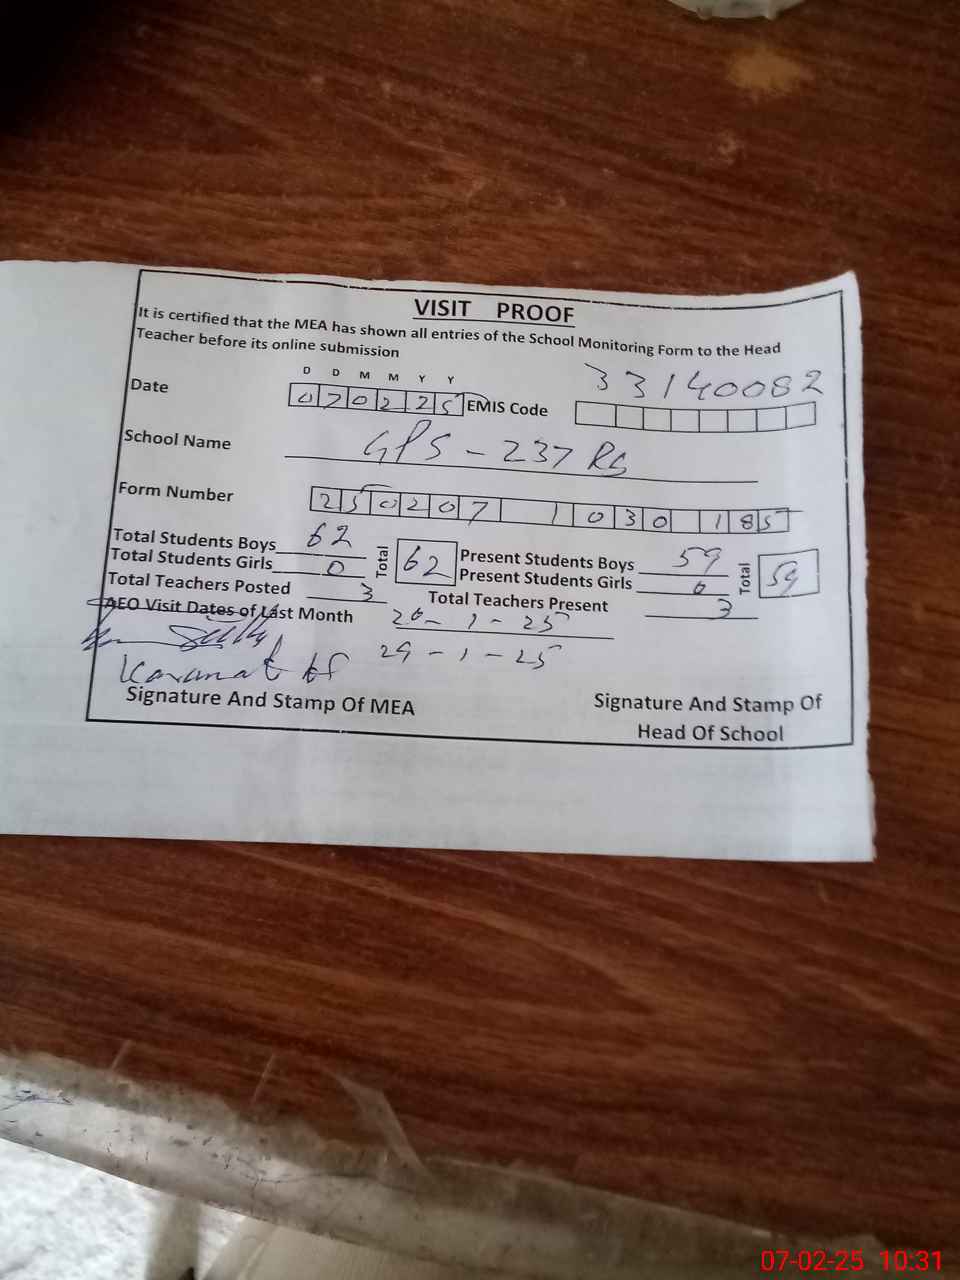 VISIT PROOF
It is certified that the MEA has shown all entries of the School Monitoring Form to the Head
Teacher before its online submission
D D M M Y Y
Date 070225 EMIS Code 33140082
School Name GPS - 237 RB
Form Number 250207 1030 185
Total Students Boys 62 Total 62 Present Students Boys 59 Total 59
Total Students Girls 0 Present Students Girls 0
Total Teachers Posted 3 Total Teachers Present 3
AEO Visit Dates of Last Month 20-1-25
29-1-25
Karamat
Signature And Stamp Of MEA
Signature And Stamp Of
Head Of School
07-02-25 10:31